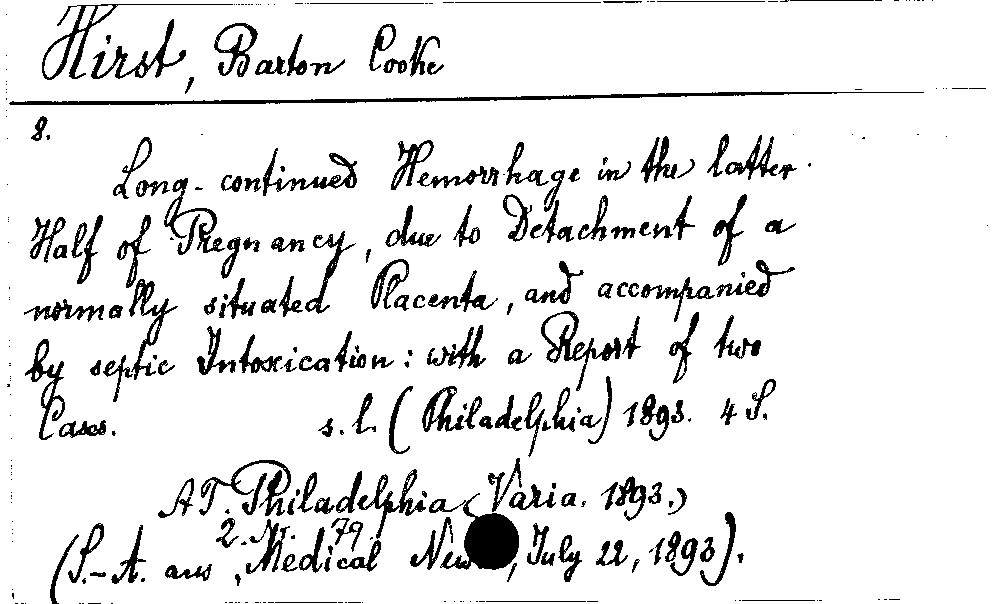 Hirst, Barton Cooke
8.
Long-continued Hemorrhage in the latter
Half of Pregnancy, due to Detachment of a
normally situated Placenta, and accompanied
by septic Intoxication: with a Report of two
Cases. s. l. (Philadelphia) 1893. 4 S.
AT. Philadelphia (Varia. 1893.)
2. Nr. 79.
(S.-A. aus „Medical News, July 22, 1893).